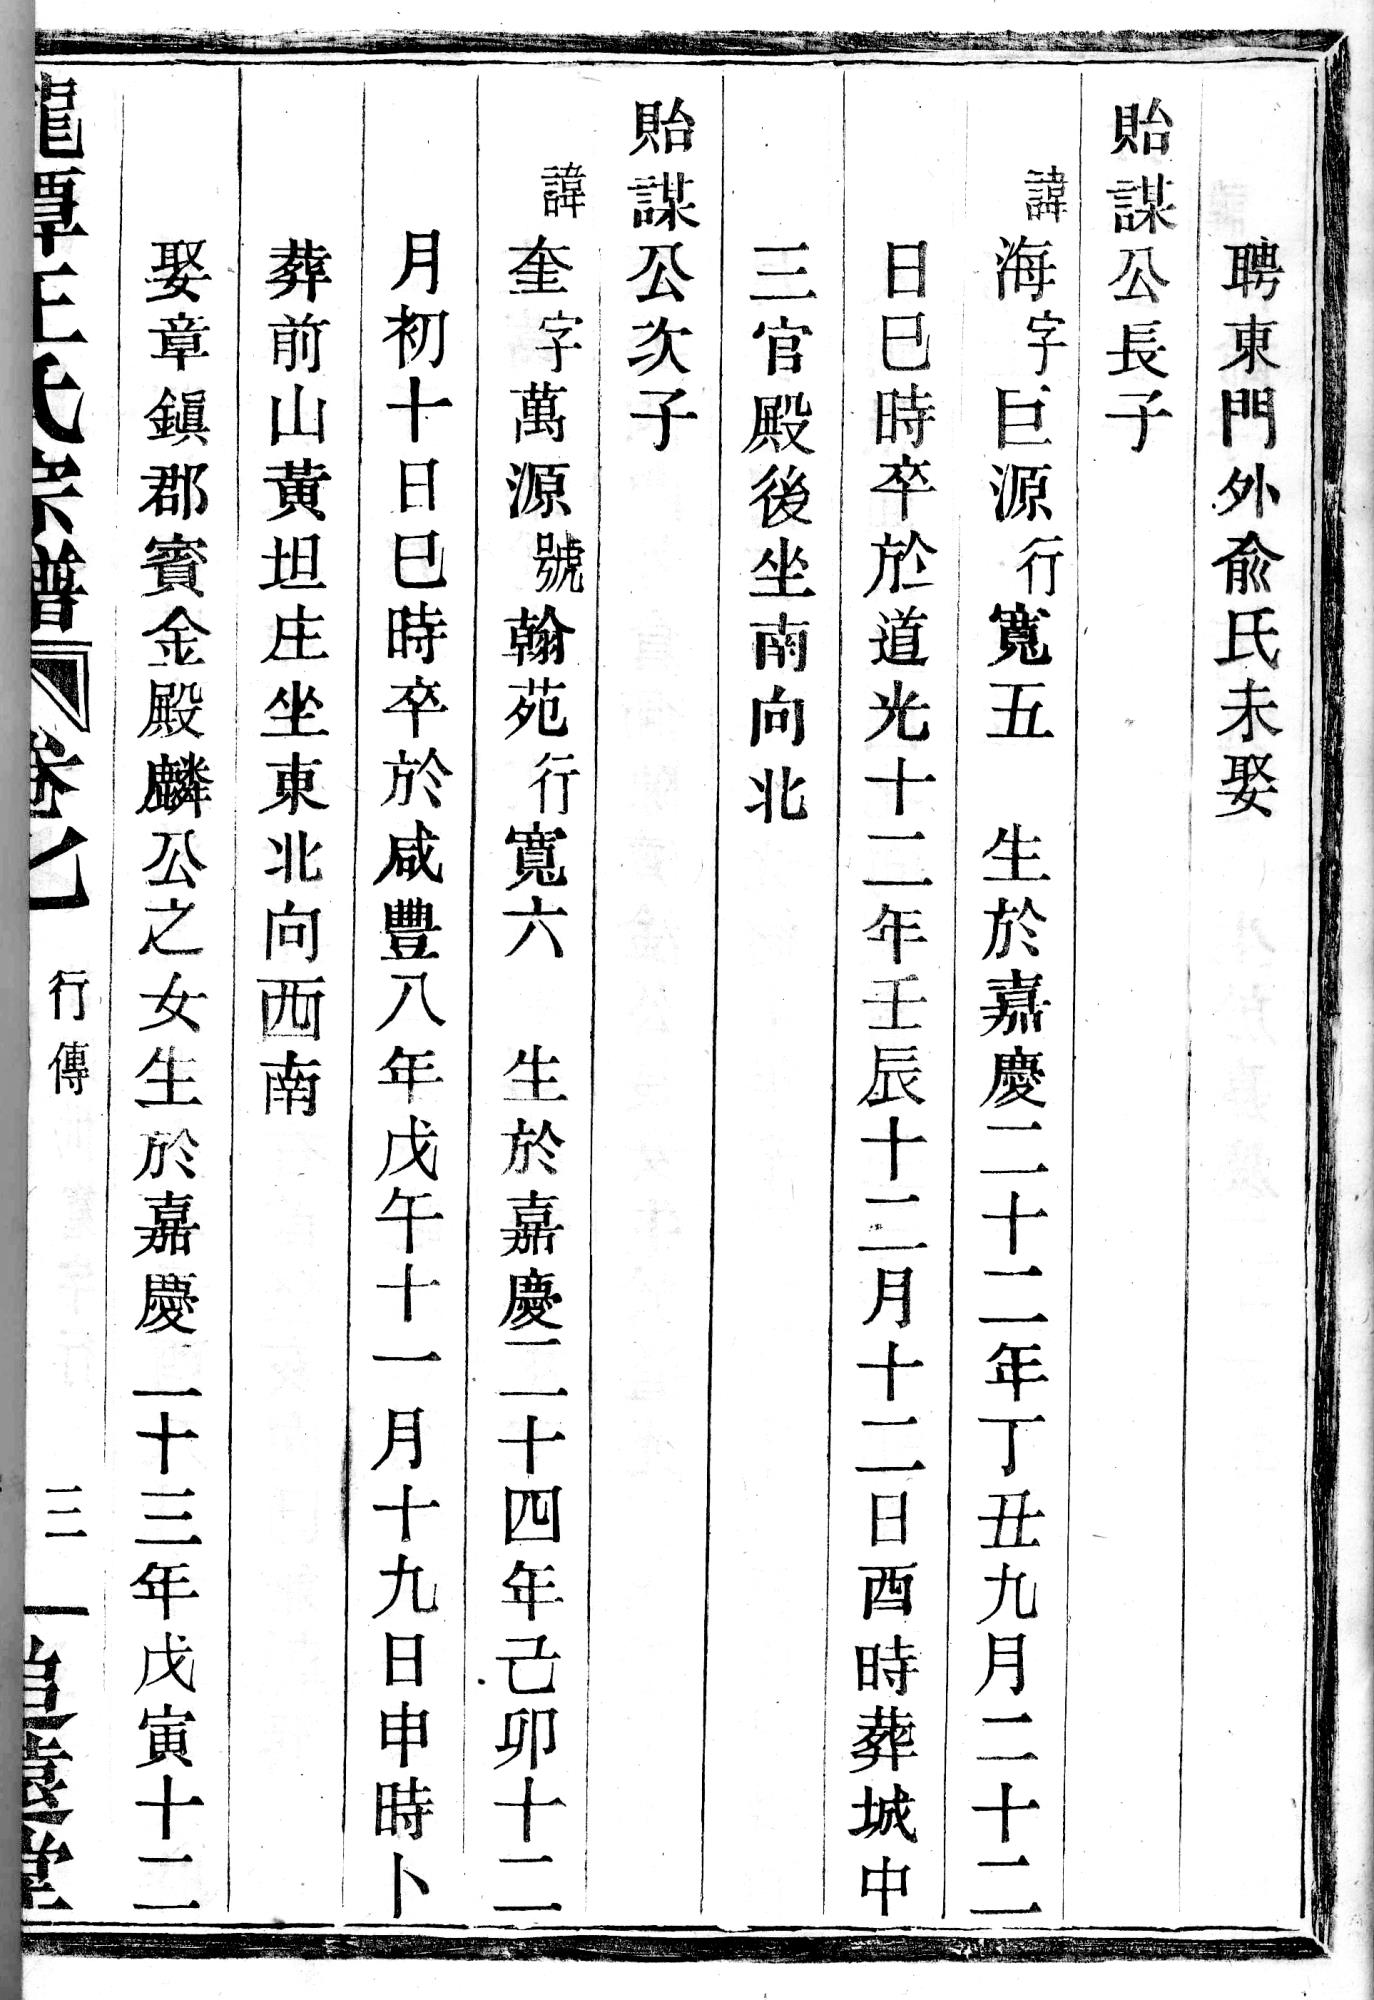 聘東門外俞氏未娶
貽謀公長子
諱海字巨源行寬五　生於嘉慶二十二年丁丑九月二十二
日巳時卒於道光十二年壬辰十二月十二日酉時葬城中
三官殿後坐南向北
貽謀公次子
諱奎字萬源號翰苑行寬六　生於嘉慶二十四年己卯十二
月初十日巳時卒於咸豐八年戊午十一月十九日申時卜
葬前山黃坦庄坐東北向西南
娶章鎮郡賓金殿麟公之女生於嘉慶二十三年戊寅十二
龍潭王氏宗譜　卷　行傳　三　追遠堂